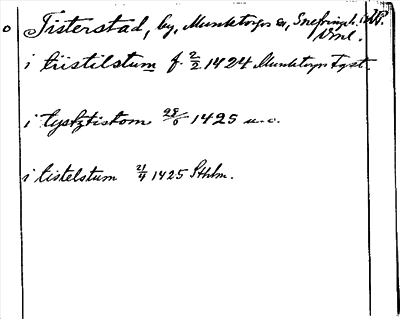 Tisterstad, by, Munktorps sn, Snefringe hd.
Vml.
i tiistilstum f. 2/2 1424 Munktorps Fyst.
i tystztistom 29/6 1425 u.o.
i tistelstum 21/4 1425 Sthlm.